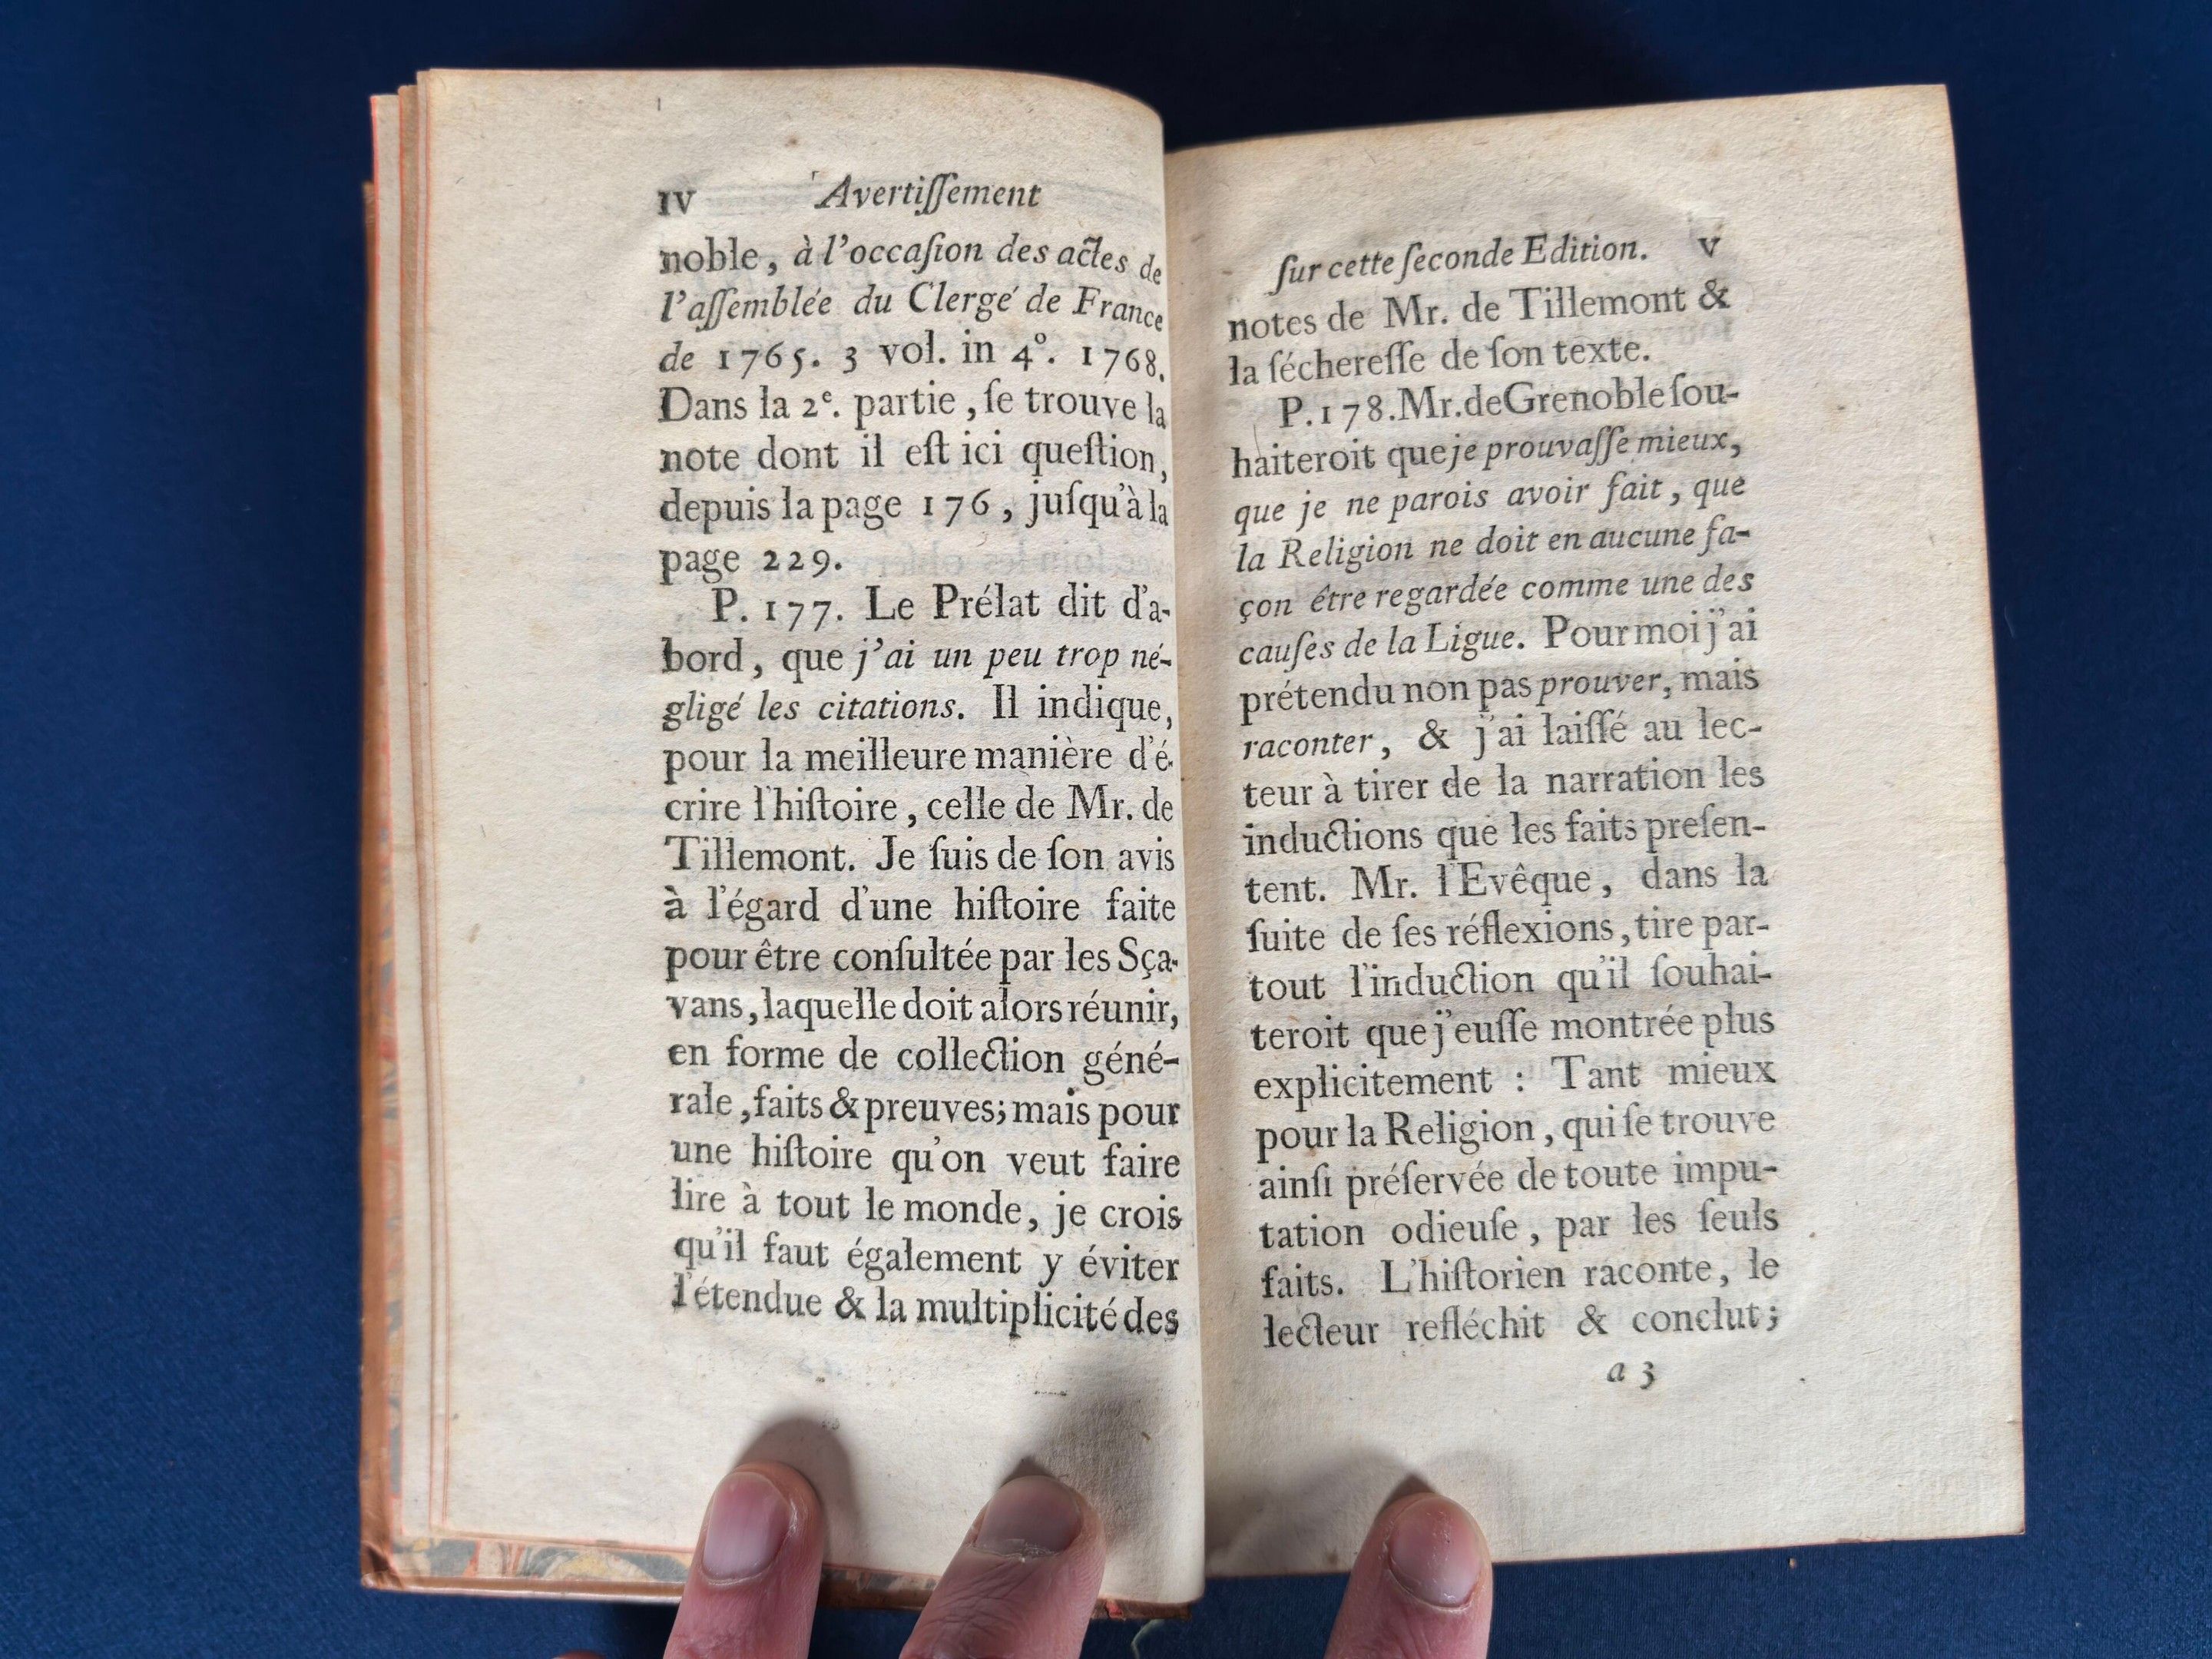 IV Avertiſſement
noble, à l'occaſion des actes de
l'aſſemblée du Clergé de France
de 1765. 3 vol. in 4°. 1768.
Dans la 2e. partie, ſe trouve la
note dont il eſt ici queſtion,
depuis la page 176, juſqu'à la
page 229.
P. 177. Le Prélat dit d'a-
bord, que j'ai un peu trop né-
gligé les citations. Il indique,
pour la meilleure manière d'é-
crire l'hiſtoire, celle de Mr. de
Tillemont. Je ſuis de ſon avis
à l'égard d'une hiſtoire faite
pour être conſultée par les Sça-
vans, laquelle doit alors réunir,
en forme de collection géné-
rale, faits & preuves; mais pour
une hiſtoire qu'on veut faire
lire à tout le monde, je crois
qu'il faut également y éviter
l'étendue & la multiplicité des
ſur cette ſeconde Edition. V
notes de Mr. de Tillemont &
la ſéchereſſe de ſon texte.
P. 178. Mr. de Grenoble ſou-
haiteroit que je prouvaſſe mieux,
que je ne parois avoir fait, que
la Religion ne doit en aucune fa-
çon être regardée comme une des
cauſes de la Ligue. Pour moi j'ai
prétendu non pas prouver, mais
raconter, & j'ai laiſſé au lec-
teur à tirer de la narration les
inductions que les faits preſen-
tent. Mr. l'Evêque, dans la
ſuite de ſes réflexions, tire par-
tout l'induction qu'il ſouhai-
teroit que j'euſſe montrée plus
explicitement : Tant mieux
pour la Religion, qui ſe trouve
ainſi préſervée de toute impu-
tation odieuſe, par les ſeuls
faits. L'hiſtorien raconte, le
lecteur refléchit & conclut;
a 3